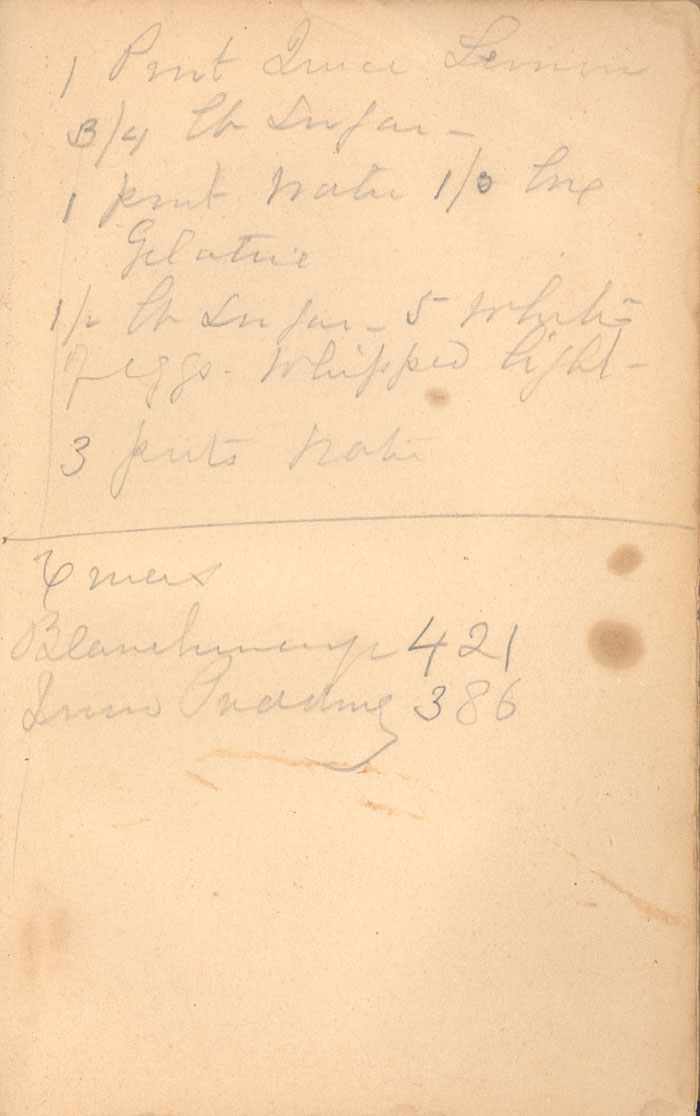 1 Pint Juice Lemon
3/4 lb Sugar -
1 pint Water 1/3 box
Gelatine
1/2 lb Sugar - 5 whites
of eggs - whipped light -
3 pints Water
Xmas
Blanchmange 421
Pudding 386